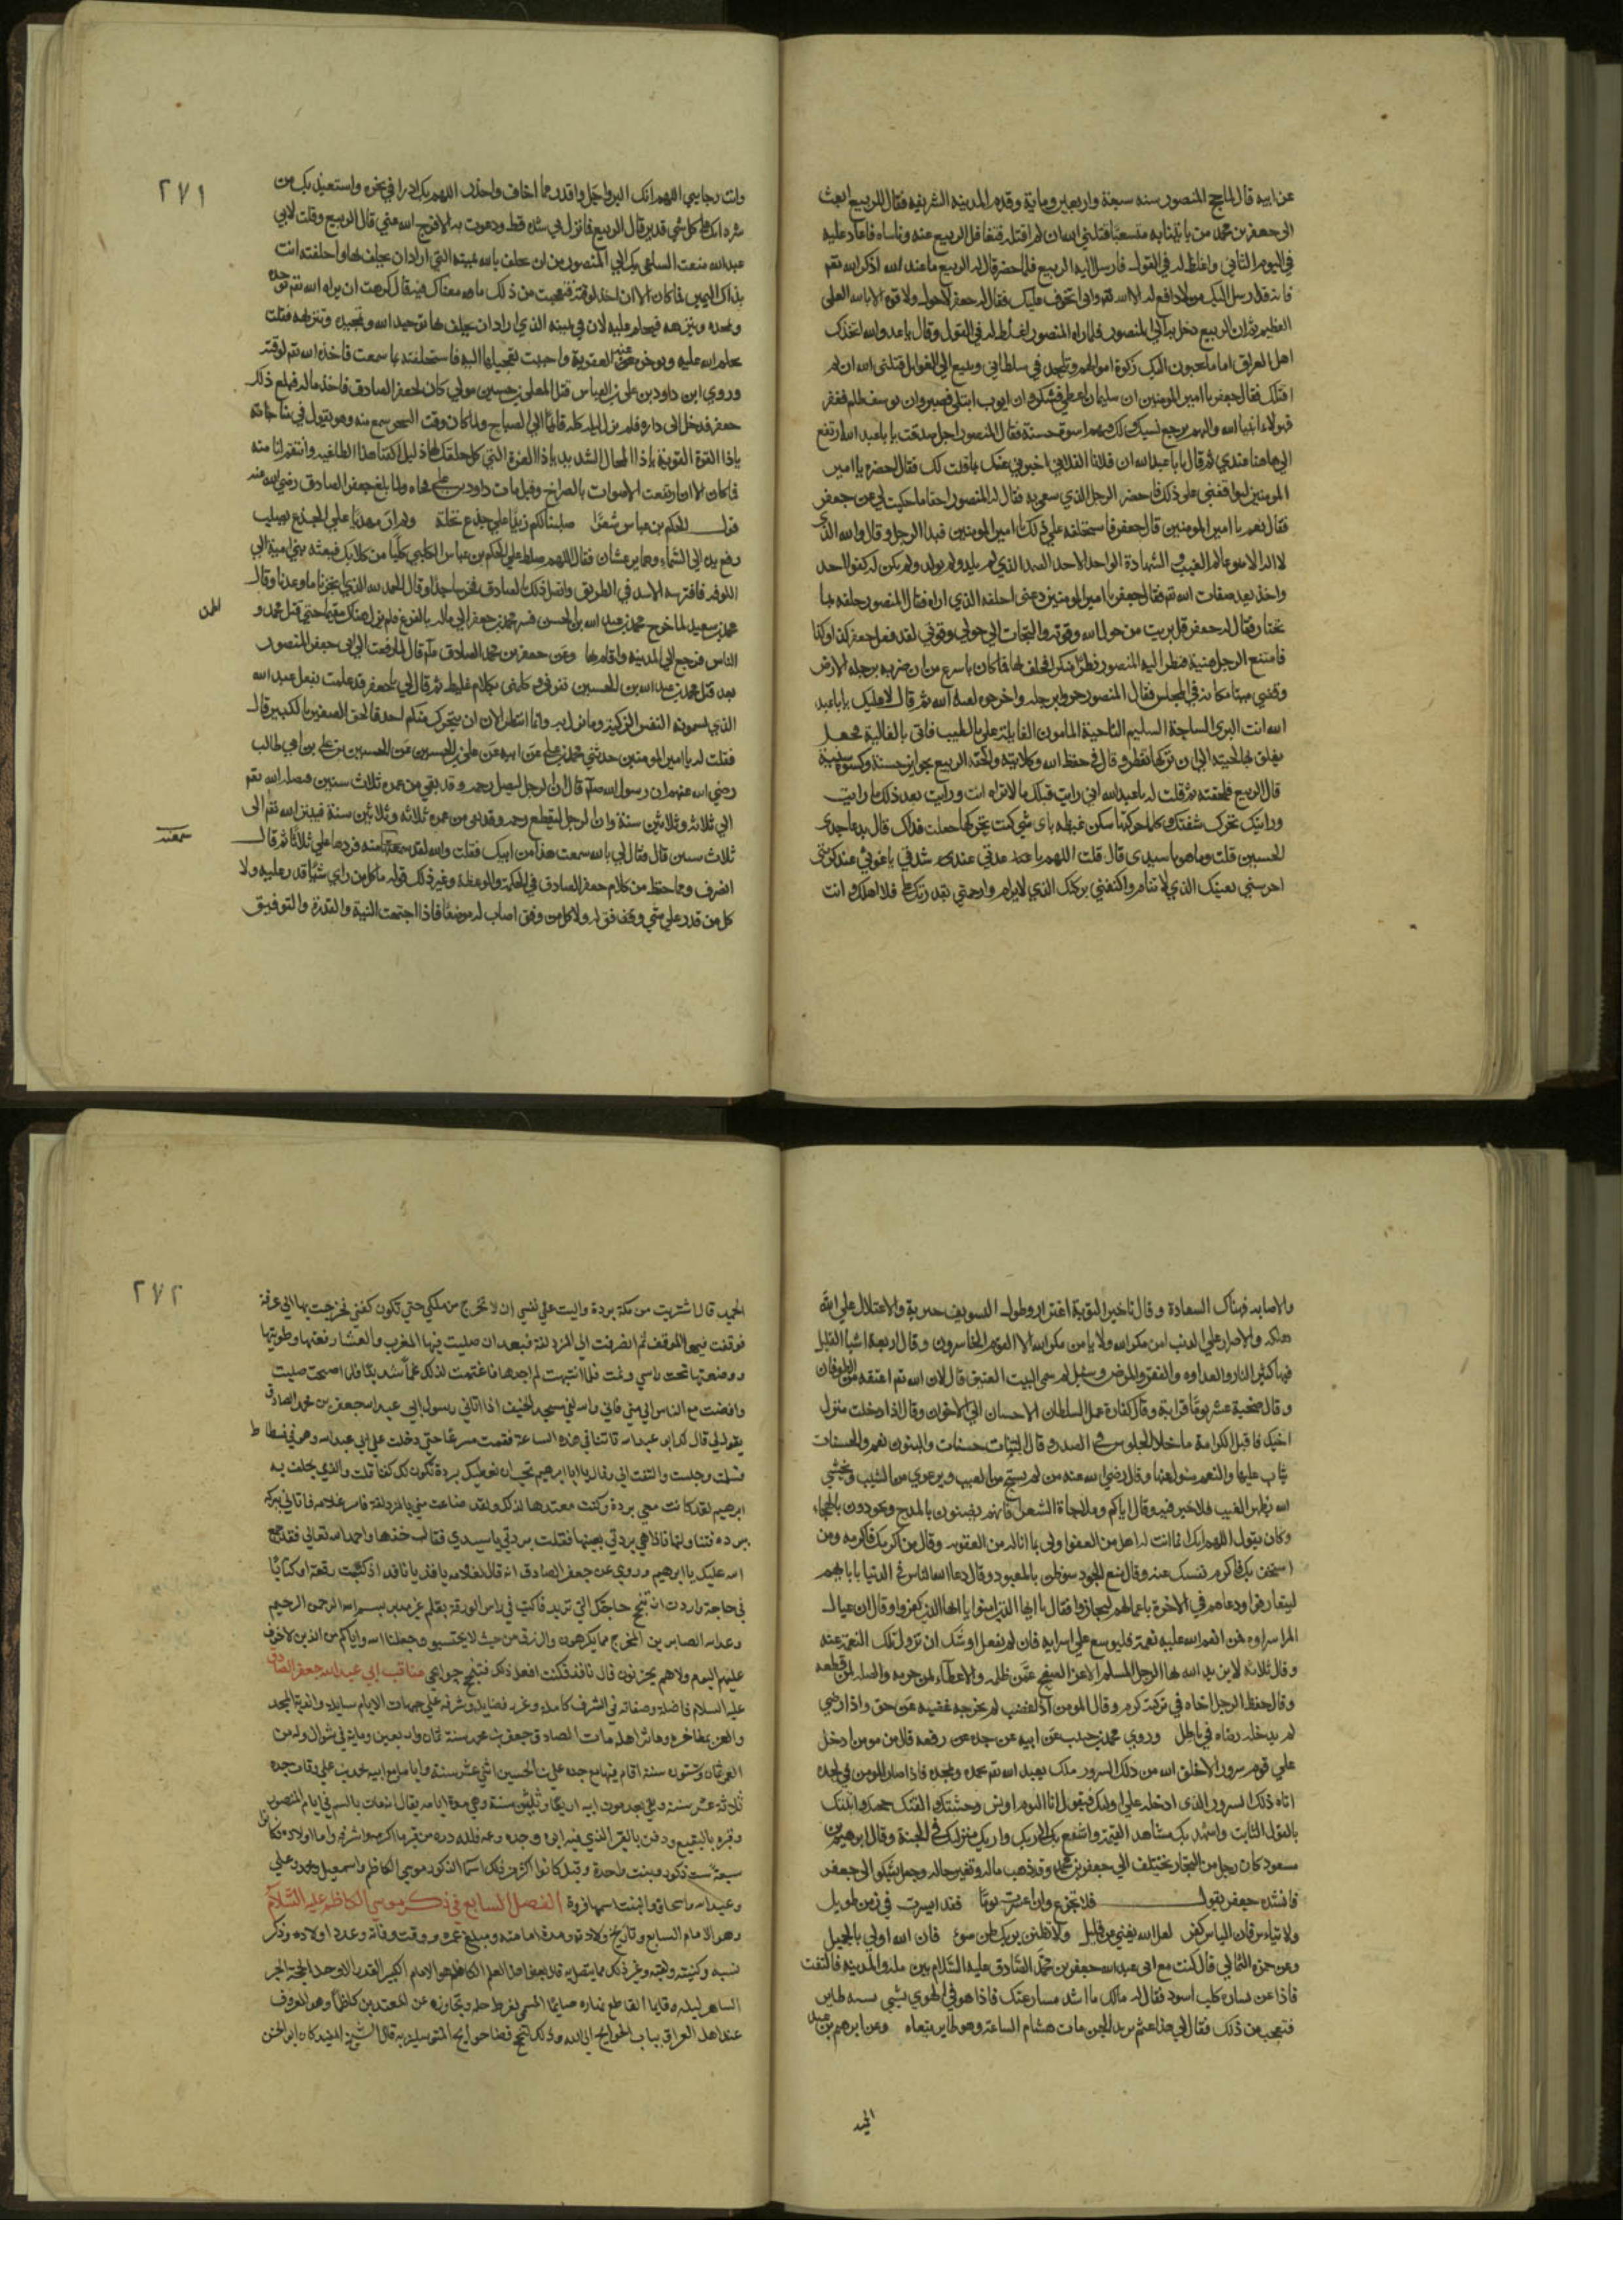 عن ابيه قال لما حج المنصور سنة سبعة واربعين وماية وقدم المدينه الشريفه فقال للربيع ابعث
الى جعفر بن محمد من ياتينا به متسعبا قتلني الله ان لم اقتله فتغافل الربيع عنه وناساه فاعاد عليه
في اليوم الثاني واغلظ له في القول فارسل اليه الربيع فلما حضر قال له الربيع يا با عبد الله اذكر الله تعم
فانه قد ارسل اليك من لا دافع له الا الله تعم واني اتخوف عليك فقال له جعفر لا حول ولا قوة الا بالله العلى
العظيم ثم ان الربيع دخل به الى المنصور فلما راه المنصور اغلظ له في القول وقال يا عدو الله اتخذك
اهل العراق اماما يجبون اليك زكوة اموالهم وتلحد في سلطاني وتبغ الي الغوايل قتلني الله ان لم
اقتلك فقال جعفر يا امير المومنين ان سليمان اعطي فشكر وان ايوب ابتلي فصبر وان يوسف ظلم فغفر
فهولاء انبيا الله واليهم يرجع نسبك ولك فيهم اسوة حسنة فقال المنصور اجل صدقت يا با عبد الله ارتفع
الي هاهنا عندي ثم قال يا با عبد الله ان فلانا الفلاني اخبرني عنك بما قلت لك فقال احضره يا امير
المومنين ليوافقني على ذلك فاحضر الرجل الذي سعى به فقال له المنصور احقا ما حكيت لي عن جعفر
فقال نعم يا امير المومنين قال جعفر فاستحلفه على ذلك يا امير المومنين فبدا الرجل وقال والله الذي
لا اله الا هو عالم الغيب والشهادة الواحد الاحد الصمد الذي لم يلد ولم يولد ولم يكن له كفوا احد
واخذ يعد صفات الله تعم فقال جعفر يا امير المومنين دعني احلفه الذي اراه فقال المنصور حلفه بما
تختار فقال له جعفر قل بريت من حول الله وقوته والتجات الى حولي وقوتي لقد فعل جعفر كذا وكذا
فامتنع الرجل هنية فنظر اليه المنصور نظرا منكرا فحلف بها فما كان باسرع من ان ضرب برجله الارض
وقضي ميتا مكانه في المجلس فقال المنصور جروا برجله واخرجوه لعنه الله ثم قال لا عليك يا با عبد
الله انت البري الساحة السليم الناحية المامون الغايلة علي بالطيب فاتي بالغالية فجعل
يغلق بها لحيته الي ان تركها تقطر وقال في حفظ الله وكلايته والحقه الربيع بجوايز حسنة وكسوة سنية
قال الربيع فلحقته ثم قلت له يا عبد الله اني رايت قبلك ما لا تراه انت ورايت بعد ذلك ما رايت
ورايتك تحرك شفتك وكلما حركتها سكن غيظه باي شي كنت تحركها جعلت فداك قال بدعا جدي
الحسين قلت وما هو يا سيدي قال قلت اللهم يا عدتي عند شدتي يا غوثي عند كربتي
احرسني بعينك الذي لا تنام واكنفني بركنك الذي لا يرام وارحمني بقدرتك علي فلا اهلك وانت
٢٧١
وانت رجايي اللهم انك اكبر واجل واقدر مما اخاف واحذر اللهم بك ادرا في نحره واستعيذ بك من
شره انك على كل شي قدير قال الربيع فما نزل بي شدة قط ودعوت به الا فرج الله عني قال الربيع وقلت لابي
عبد الله منعت الساعي بك الي المنصور من ان يحلف بالله يمينه التي اراد ان يحلف بها واحلفته انت
بذاك اليمين فما كان الا ان اخذ لوقته فتعجبت من ذلك ما معناك فيه قال كرهت ان يراه الله تعم يوحده
ويمجده وينزهه فيحلم عليه لان في يمينه الذي اراد ان يحلف بها توحيد الله وتمجيده وتنزيهه فقلت
يحلم الله عليه ويوخر عنه العقوبة واحببت تعجيلها اليه فاستحلفته بما سمعت فاخذه الله تعم لوقته
وروي ابن داود بن علي بن العباس قتل المعلى بن حسين مولي كان لجعفر الصادق فاخذ ماله فبلغ ذلك
جعفر فدخل الى داره فلم يزل ليله كله قائما الى الصباح ولما كان وقت السحر سمع منه وهو يقول في مناجاته
ياذا القوة القوية ياذا المحال الشديد ياذا العزة التي كل خلقك لها ذليل اكفنا هذا الطاغية وانتقم لنا منه
فما كان الا ان ارتفعت الاصوات بالصراخ وقيل مات داود بن علي فجاءه ولما بلغ جعفر الصادق رضي الله عنه
قول الحكم بن عباس شعرًا صلبنا لكم زيدا على جذع نخلة ولم ار مهديا على الجذع يصلب
رفع يديه الى السماء وهما يرعشان فقال اللهم سلط على الحكم بن عباس الكلبي كلبا من كلابك فبعثه بني امية الي
الكوفه فافترسه الاسد في الطريق واتصل ذلك بالصادق فخر ساجدا وقال الحمد لله الذي انجزنا ما وعدنا وقال
محمد بن سعيد لما خرج محمد بن عبد الله بن الحسن فر جعفر الي ماله بالفرع فلم يزل هناك مقيما حتى قتل محمد و
الناس فرجع الي المدينة واقام بها وعن جعفر بن محمد الصادق قال لما رفعت الي ابي جعفر المنصور
بعد قتل محمد بن عبد الله بن الحسين نهرني وكلمني بكلام غليظ ثم قال لي يا جعفر قد علمت بفعل عبد الله
الذي يسمونه النفس الزكية وما نزل به وانما انتظر الان ان يتحرك منكم احد فالحق الصغير بالكبير قال
فقلت له يا امير المومنين حدثني محمد بن علي عن ابيه عن علي بن الحسين عن الحسين بن علي بن ابي طالب
رضي الله عنهم ان رسول الله صلعم قال ان الرجل ليصل رحمه وقد بقي من عمره ثلاث سنين فيصله الله تعم
الي ثلاثة وثلاثين سنة وان الرجل ليقطع رحمه وقد بقي من عمره ثلاثه وثلاثين سنة فيبتر الله تعم الى
ثلاث سنين قال فقال لي بالله سمعت هذا من ابيك فقلت والله لقد سمعته منه فردها علي ثلاثًا ثم قال
انصرف ومما حفظ من كلام جعفر الصادق في الحكمة والموعظة وغير ذلك قوله ما كل من راي شيًا قدر عليه ولا
كل من قدر على شي وفق له ولا كل من وفق اصاب له موضعًا فاذا اجتمعت النية والقدرة والتوفيق
والاصابه فهناك السعادة وقال تاخير التوبة اغترار وطول التسويف حيرة والاعتلال على الله
هلكه والاصرار على الذنب امن مكر الله ولا يامن مكر الله الا القوم الخاسرون وقال اربعة اشيا القليل
فيها كثير النار والعداوه والفقر والمرض وسئل لم سمي البيت العتيق قال لان الله تعم اعتقه من الطوفان
وقال صحبة عشر يومًا قرابة وقال كفارة عمل السلطان الاحسان الي الاخوان وقال اذا دخلت منزل
اخيك فاقبل الكرامة ما خلا الجلوس في الصدر وقال البنات حسنات والبنون نعم والحسنات
يثاب عليها والنعم مسول عنها وقال رضي الله عنه من لم يستح من العيب ويرعوي من الشيب ويخشي
الله بظهر الغيب فلا خير فيه وقال اياكم وملاحاة الشعرا فانهم يضنون بالمدح ويجودون بالهجاء
وكان يقول اللهم انك بما انت له اهل من العفو اولى بما انا له من العقوبه وقال من اكرمك فاكرمه ومن
استخف بك فاكرم نفسك عنه وقال منع الجود سوظن بالمعبود وقال دعا الله الناس في الدنيا بابايهم
ليتعارفوا ودعاهم في الاخرة باعمالهم ليجازوا فقال يا ايها الذين امنوا يا ايها الذين كفروا وقال ان عيال
المرا اسراوه فمن انعم الله عليه نعمة فليوسع علي اسرايه فان لم يفعل اوشك ان تزول تلك النعمة عنه
وقال ثلاثه لا يزيد الله بها الرجل المسلم الا عزا الصفح عمن ظلمه والاعطاء لمن حرمه والصله لمن قطعه
وقال حفظ الرجل اخاه في تركته كرم وقال المومن اذا غضب لم يخرجه غضبه عن حق واذا رضي
لم يدخله رضاه في باطل وروي محمد بن حبيب عن ابيه عن جده عن رفعه قال من مومن ادخل
على قوم سرورا الا خلق الله من ذلك السرور ملك يعبد الله تعم يحمده ويمجده فاذا صار المومن في لحده
اتاه ذلك السرور الذي ادخله على اوليك فيقول انا اليوم اونس وحشتك والقنك حجتك واثبتك
بالقول الثابت واشهد بك مشاهد القيمة واشفع بك الي ربك واريك منزلك في الجنة وقال ابرهيم بن
مسعود كان رجل من التجار يختلف الي جعفر بن محمد وقد ذهب ماله وتغير حاله وجعل يشكو الى جعفر
فانشده جعفر يقول فلا تجزع وان اعسرت يومًا فقد ايسرت في زمن طويل
ولا تياس فان الياس كفر لعل الله يغني عن قليل ولا تظنن بربك ظن سوء فان الله اولى بالجميل
وعن حمزه الثمالي قال كنت مع ابي عبد الله جعفر بن محمد الصادق عليه السلام بين مكة والمدينه فالتفت
فاذا عن يساره كلب اسود فقال له مالك ما اشد مسارعتك فاذا هو في الهوي يشبه الطاير
فتعجب من ذلك فقال لي هذا عثم بريد الجن مات هشام الساعة وهو طاير ينعاه وعن ابرهيم بن عبد
٢٧٢
الحميد قال اشتريت من مكة بردة واليت علي نفسي ان لا تخرج من ملكي حتي تكون كفني فخرجت بها الي عرفة
فوقفت فيها الموقف ثم انصرفت الى المزدلفة فبعد ان صليت فيها المغرب والعشا رفعتها وطويتها
ووضعتها تحت راسي ونمت فلما انتبهت لم اجدها فاغتممت لذلك غمًا شديدًا فلما اصبحت صليت
وافضت مع الناس الى مني فاني والله لفي مسجد الخيف اذ اتاني رسول ابي عبد الله جعفر بن محمد الصادق
يقول لي قال لك ابو عبد الله تاتنا في هذه الساعة فقمت مسرعًا حتى دخلت على ابي عبد الله وهو في فسطاط
فسلمت وجلست والتفت الي وقال يا ابرهيم تحب ان نعطيك بردة تكون لك كفنا قلت والذي يحلف به
ابرهيم لقد كانت معي بردة وكنت معتدها لذلك ولقد ضاعت مني بالمزدلفة فامر غلامه فاتاني ببرده
برده فتناولتها فاذا هي بردتي بعينها فقلت بردتي يا سيدي فقال خذها واحمد الله تعالى فقد جمع
الله عليك يا ابرهيم وروي عن جعفر الصادق انه قال لغلامه نافذ يا نافذ اذ كتبت رقعة او كتابًا
في حاجة واردت ان تنجح حاجتك التي تريد فاكتب في راس الورقة بقلم غير مديد بسم الله الرحمن الرحيم
وعد الله الصابرين المخرج مما يكرهون والرزق من حيث لا يحتسبون جعلنا الله واياكم من الذين لا خوف
عليهم اليوم ولا هم يحزنون قال نافذ فكنت افعل ذلك فتنجح حوايجي مناقب ابي عبد الله جعفر الصادق
عليه السلام فاضلة وصفاته في الشرف كاملة وغرر فضايله وشرفه على جبهات الايام سايلة واندية المجد
والعز بمفاخره وماثره اهله مات الصادق جعفر بن محمد سنة ثمان واربعين وماية في شوال وله من
العمر ثمان وستون سنة اقام فيها مع جده علي بن الحسين اثني عشر سنة واياما مع ابيه محمد بن علي بعد وفات جده
ثلاثة عشر سنة وبقي بعد موت ابيه اربعًا وثلثين سنة وهي مدة امامته يقال انه مات بالسم في ايام المنصور
وقبره بالبقيع ودفن بالقبر الذي فيه ابوه وجده وعم جده فلله دره من قبر ما اكرمه واشرفه واما اولاده فكانوا
سبعة ستة ذكور وبنت واحدة وقيل كانوا اكثر من ذلك اسما الذكور موسى الكاظم واسمعيل ومحمد وعلي
وعبد الله واسحاق والبنت اسمها فروة الفصل السابع في ذكر موسى الكاظم عليه السلام
وهو الامام السابع وتاريخ ولادته ومدة امامته ومبلغ عمره ووقت وفاته وعدد اولاده وذكر
نسبه وكنيته ولقبه وغير ذلك مما يتصل به قال بعض اهل العلم الكاظم هو الامام الكبير القدر الاوحد الحجة الحبر
الساهر ليله قايما القاطع نهاره صايمًا المسمى لفرط حلمه وتجاوزه عن المعتدين كاظمًا وهو المعروف
عند اهل العراق بباب الحوايج الى الله وذلك لنجح قضا حوايج المتوسلين به قال الشيخ المفيد كان ابو الحسن